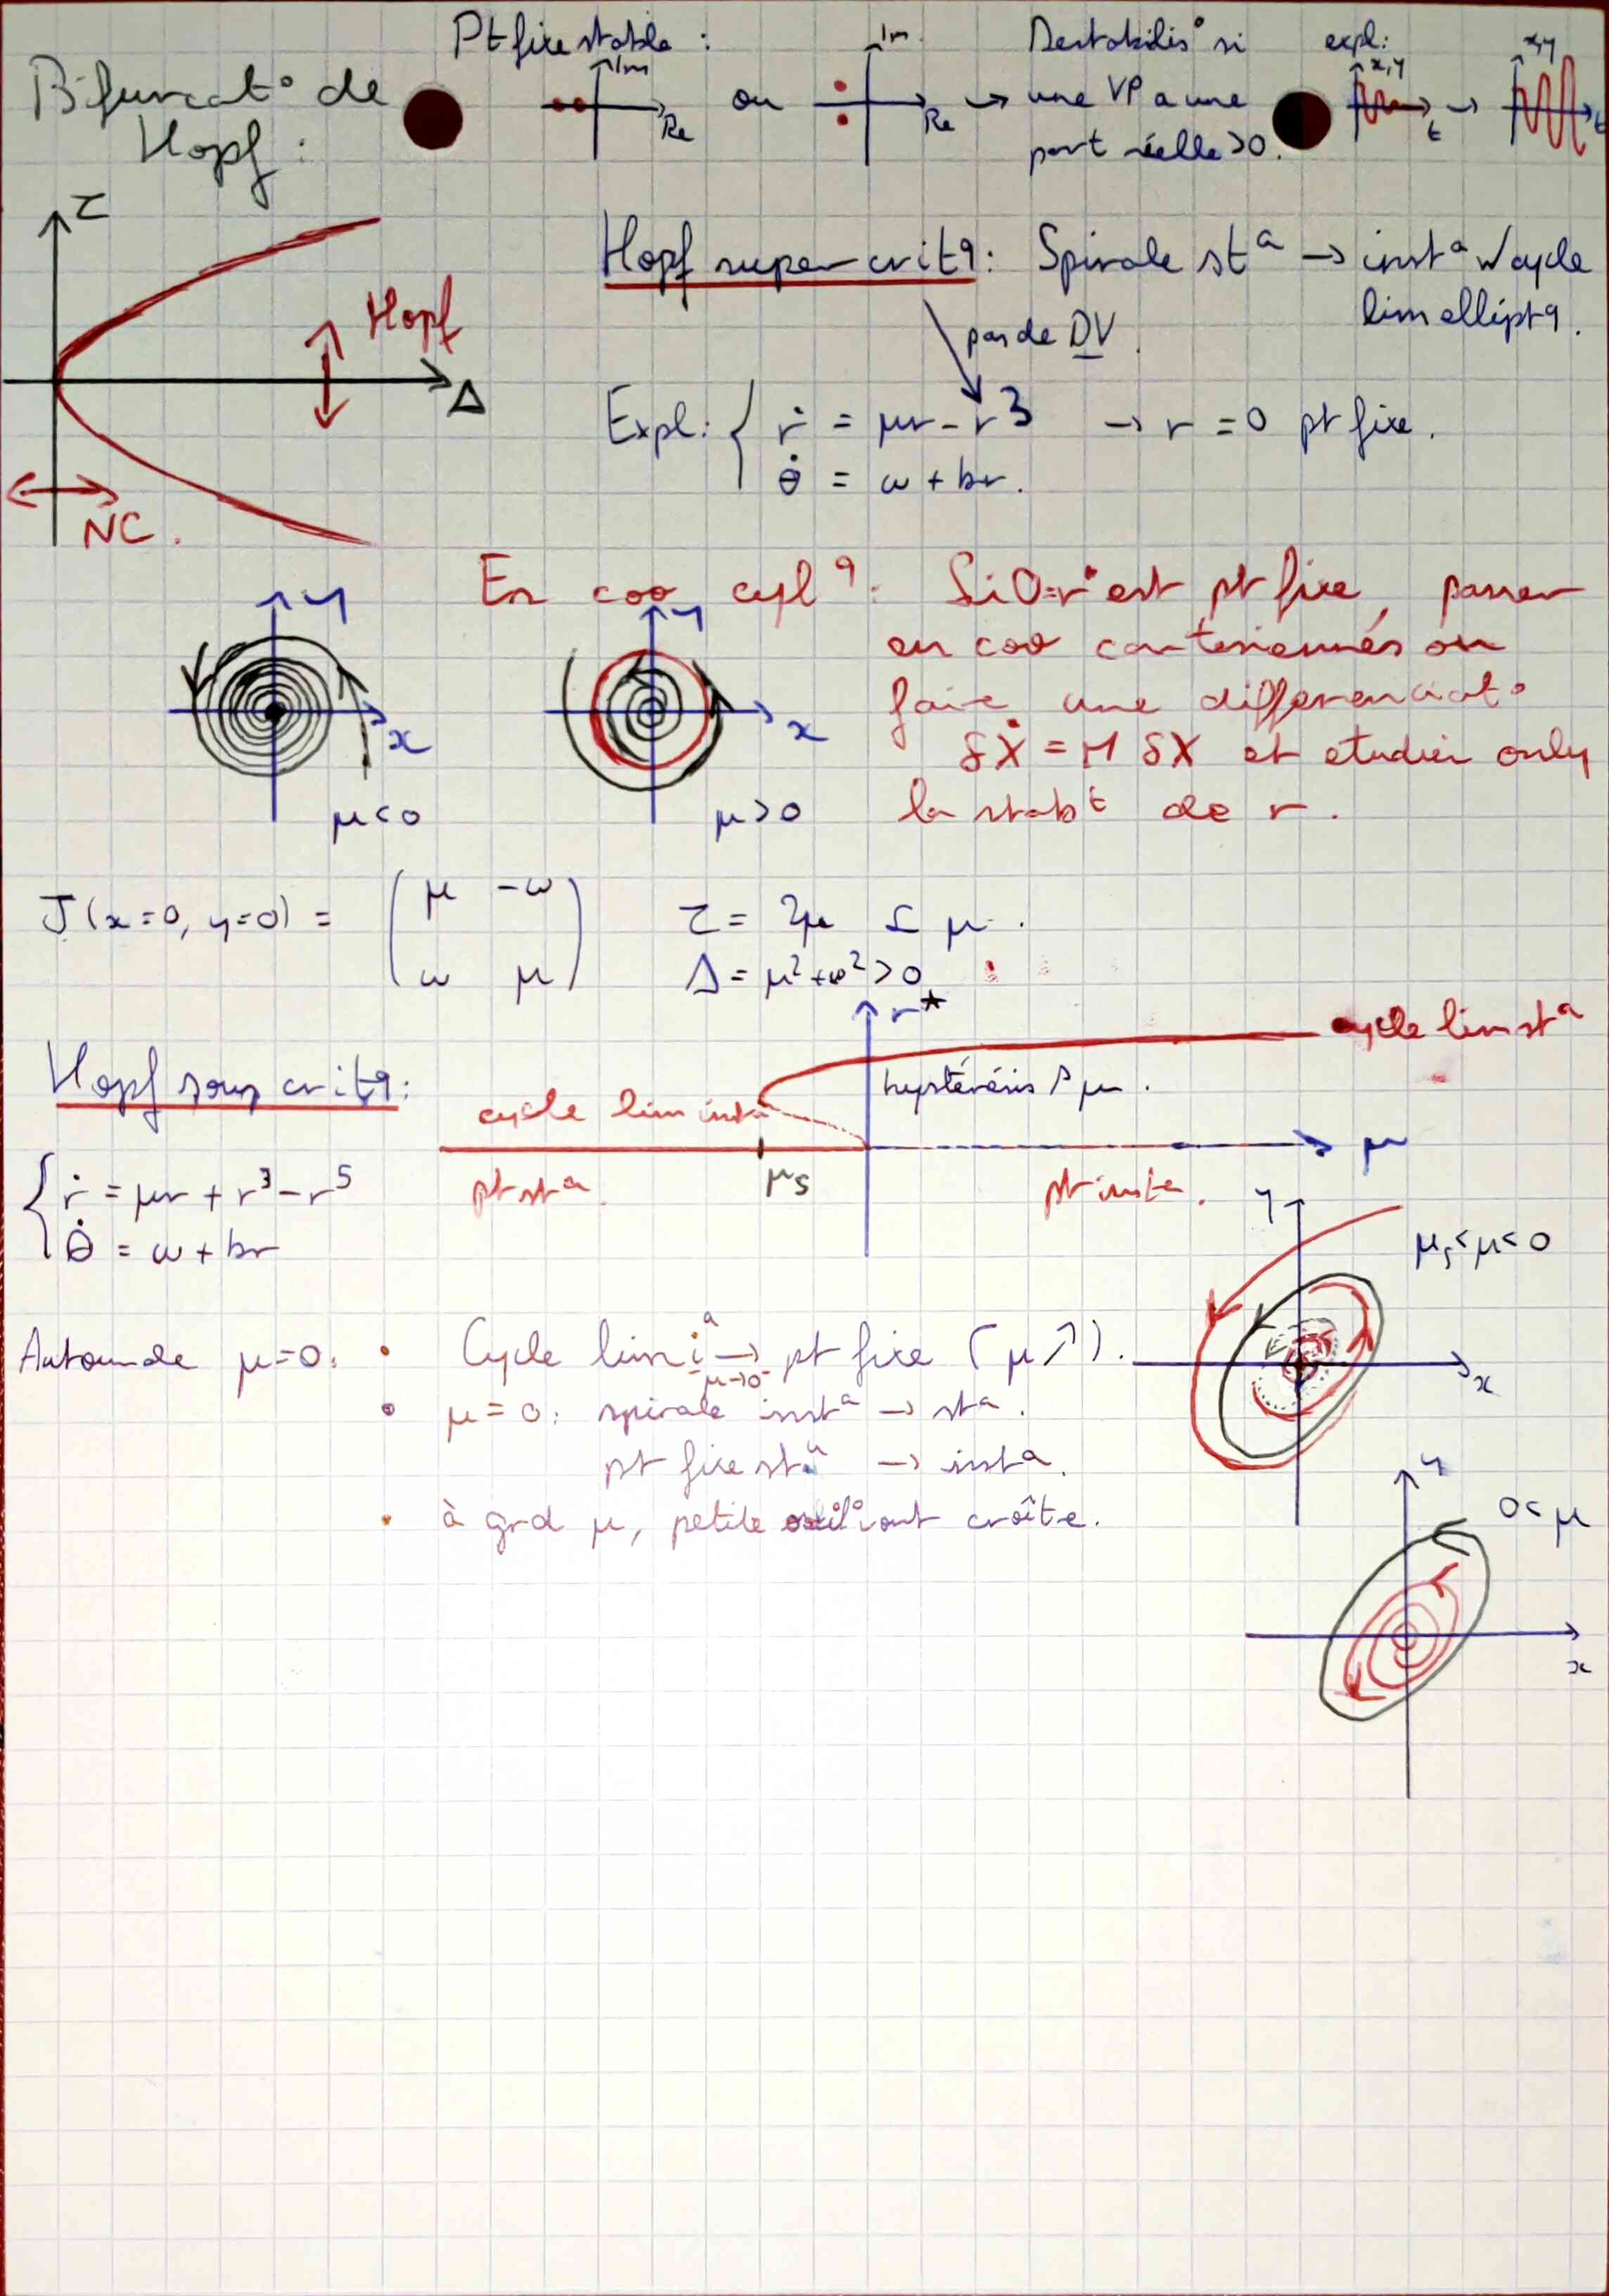 Bifurcat° de
Hopf :
Pt fixe stable :
Im
Re
ou
Im
Re
→ Destabilis° si
une VP a une
part réelle >0.
expl:
x,y
t
→
x,y
t
τ
Hopf
Δ
NC.
Hopf supercritq: Spirale stª → instª w/cycle
lim elliptq.
pas de DV.
Expl: { ṙ = μr - r³ → r = 0 pt fixe.
θ̇ = ω + br.
En coo cylq: Si 0=r est pt fixe, passer
en coo cartesiennes ou
faire une differenciat°
δẊ = M δX et etudier only
la stabt de r.
y
x
μ<0
y
x
μ>0
J(x=0, y=0) = ( μ -ω
ω μ )
τ = 2μ μ.
Δ = μ²+ω² >0
Hopf sous critq:
r*
cycle lim stª
hystérésis μ.
cycle lim inst
pt stª.
μs
pt instª.
μ
{ ṙ = μr + r³ - r⁵
θ̇ = ω + br
y
μs<μ<0
x
Autour de μ=0: • Cycle lim iª → pt fixe (μ↗).
μ→0⁻
• μ = 0: spirale instª → stª.
pt fixe stª → instª.
• à grd μ, petite oscil° vont croître.
y
0<μ
x